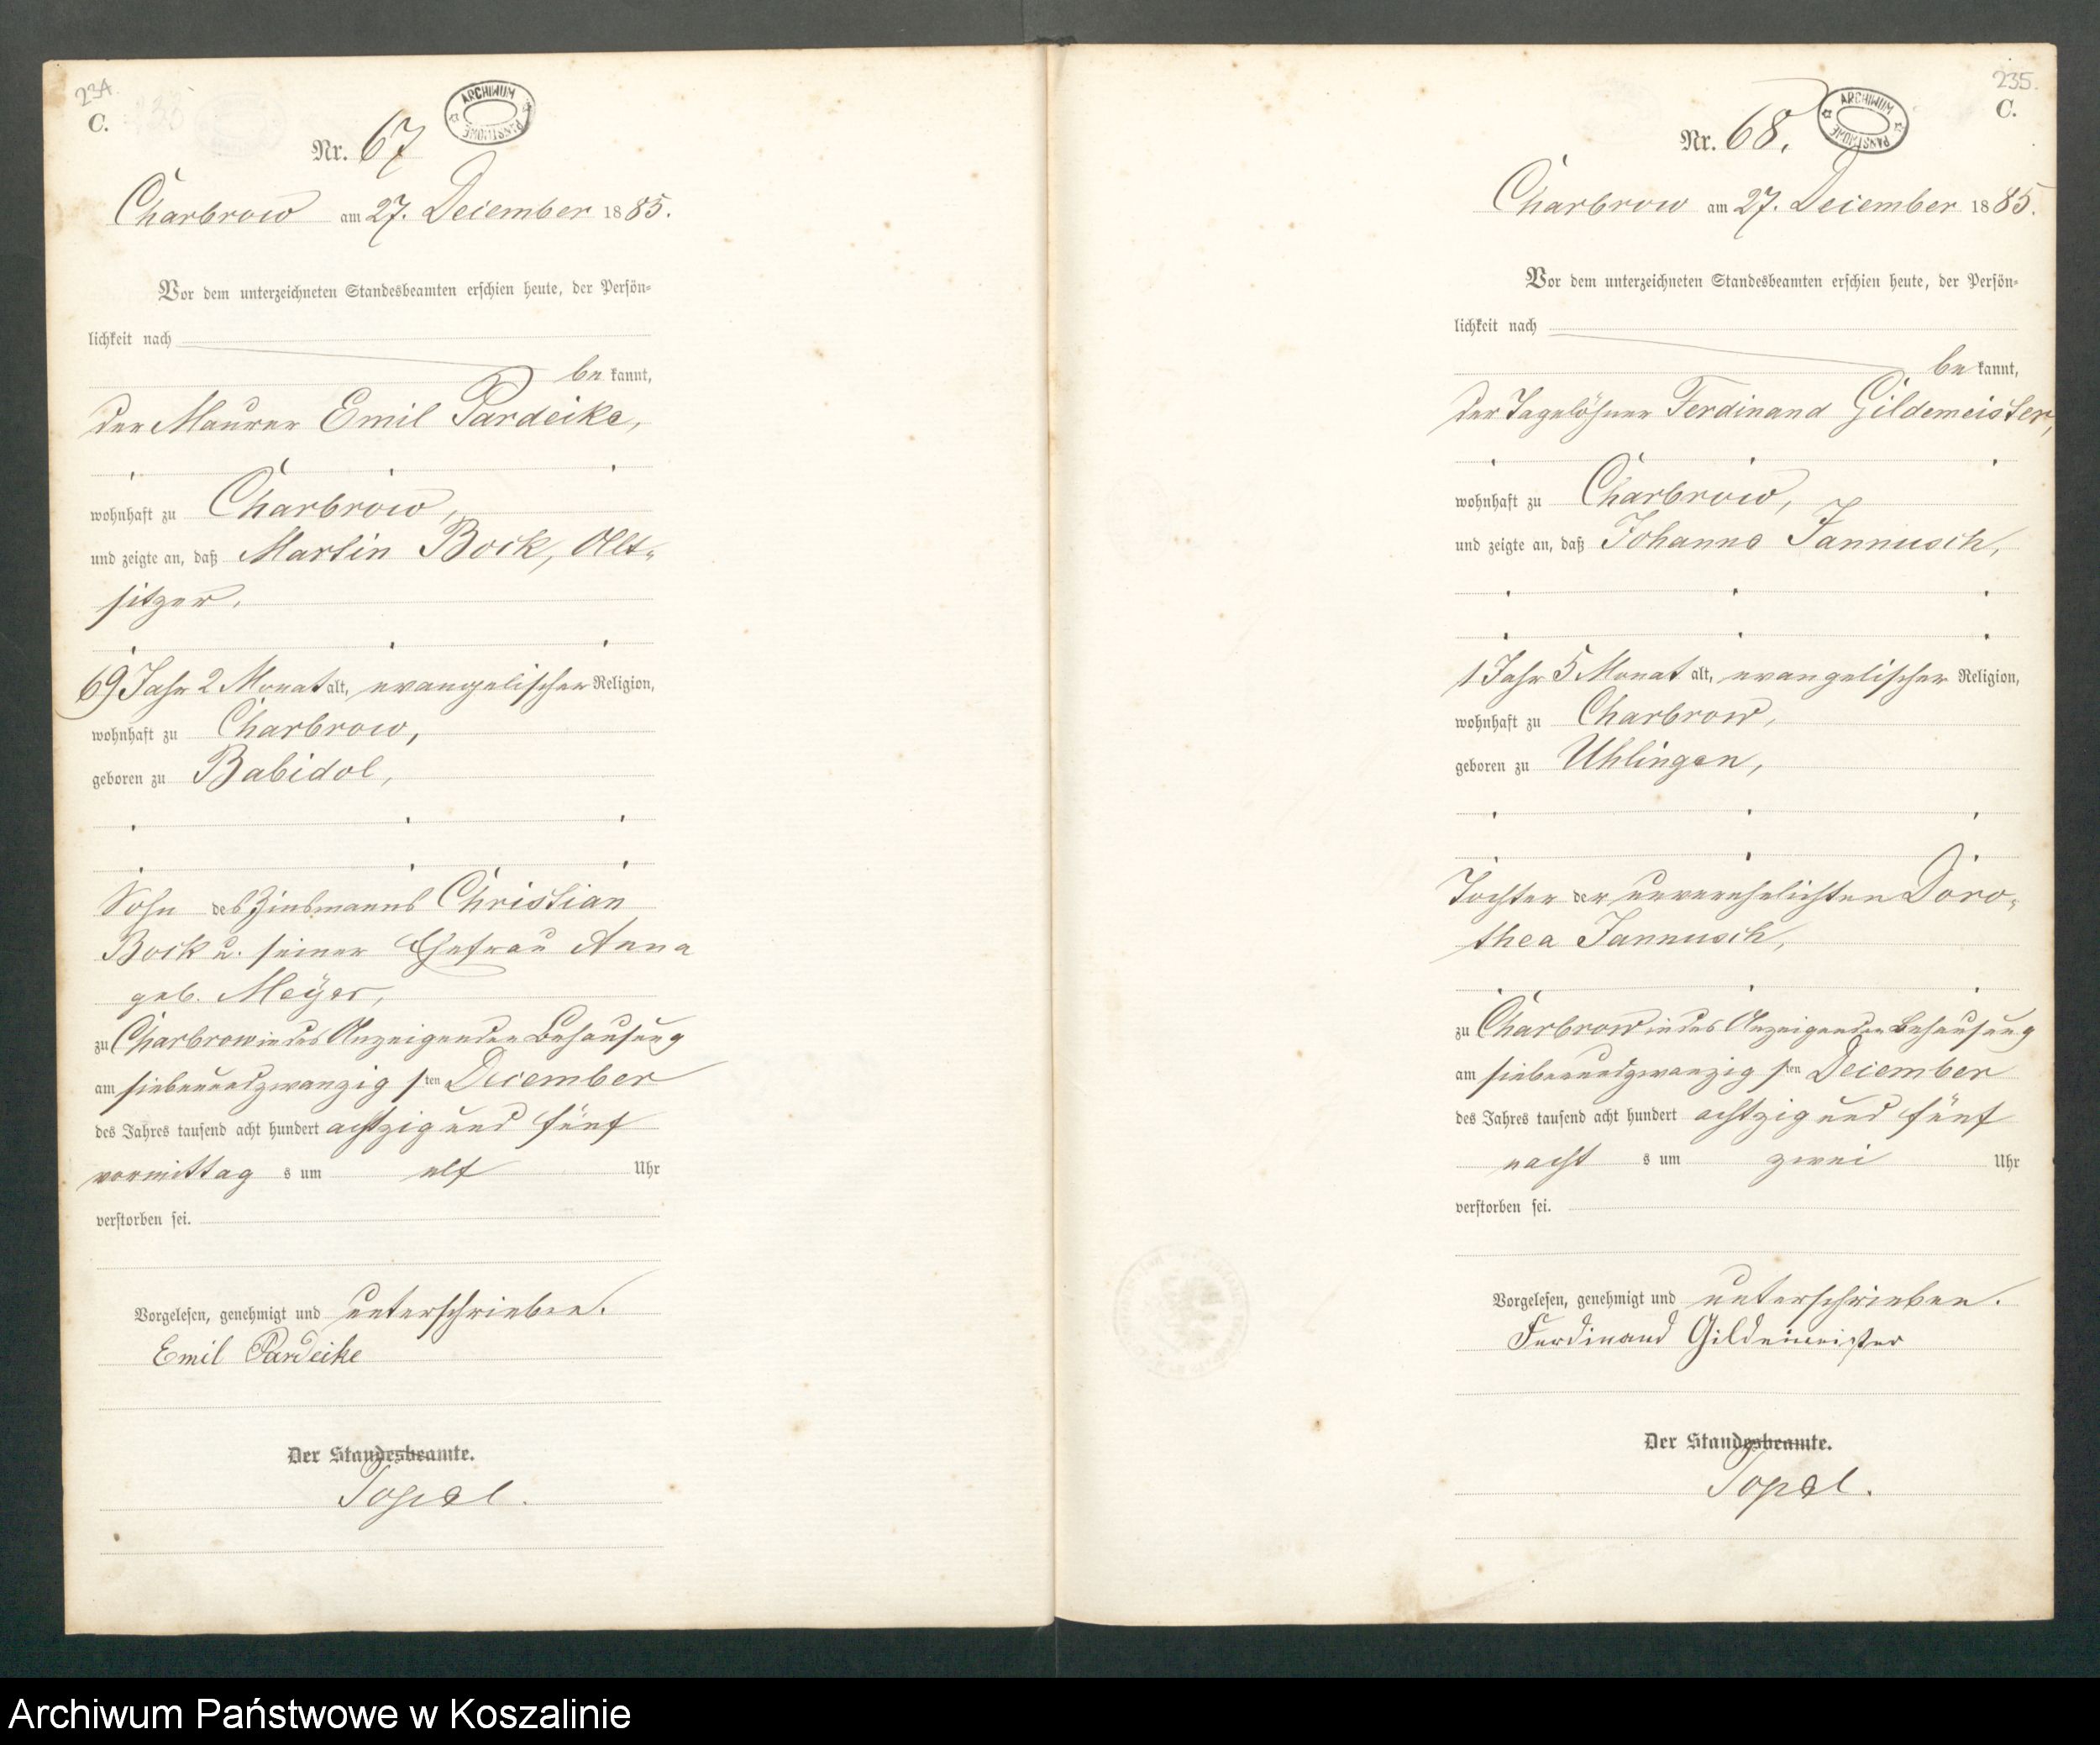 234.
C.
ARCHIWUM PAŃSTWOWE
Nr. 67
Charbrow am 27. December 1885.
Vor dem unterzeichneten Standesbeamten erschien heute, der Persön-
lichkeit nach
be kannt,
der Maurer Emil Pardeike,
wohnhaft zu Charbrow,
und zeigte an, daß Martin Bock, Alt-
sitzer,
69 Jahr 2 Monat alt, evangelischer Religion,
wohnhaft zu Charbrow,
geboren zu Babidol,
Sohn des Zinsmanns Christian
Bock u. seiner Ehefrau Anna
geb. Meÿer,
zu Charbrow in des Anzeigenden Behausung
am siebenundzwanzig sten December
des Jahres tausend acht hundert achtzig und fünf
vormittag s um elf Uhr
verstorben sei.
Vorgelesen, genehmigt und unterschrieben.
Emil Pardeike
Der Standesbeamte.
Topel.
235.
C.
ARCHIWUM PAŃSTWOWE
Nr. 68.
Charbrow am 27. December 1885.
Vor dem unterzeichneten Standesbeamten erschien heute, der Persön-
lichkeit nach
be kannt,
der Tagelöhner Ferdinand Gildemeister,
wohnhaft zu Charbrow,
und zeigte an, daß Johanne Jannusch,
1 Jahr 5 Monat alt, evangelischer Religion,
wohnhaft zu Charbrow,
geboren zu Uhlingen,
Tochter der unverehelichten Doro-
thea Jannusch,
zu Charbrow in des Anzeigenden Behausung
am siebenundzwanzig sten December
des Jahres tausend acht hundert achtzig und fünf
nacht s um zwei Uhr
verstorben sei.
Vorgelesen, genehmigt und unterschrieben.
Ferdinand Gildemeister
Der Standesbeamte.
Topel.
Archiwum Państwowe w Koszalinie